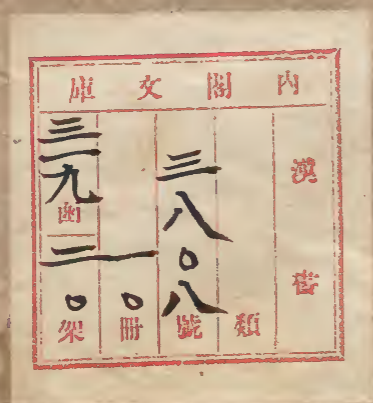 内閣文庫
漢書
類
三八〇八號
一〇冊
三一九函
二〇架